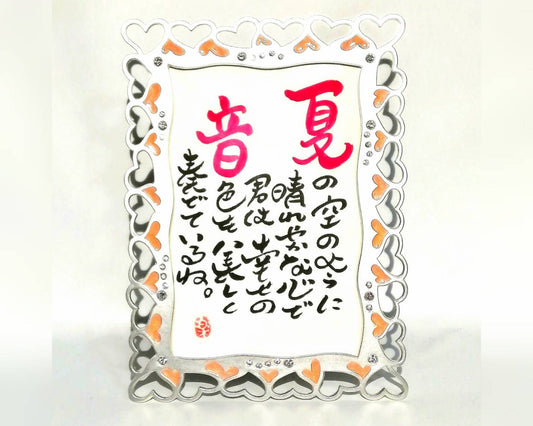 夏の空のように
晴れやかな心で
君は幸せの
音色を美しく
奏でているね。